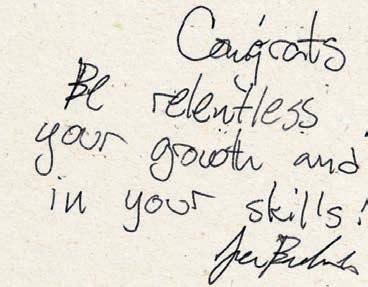 Congrats
Be relentless
your growth and
in your skills!